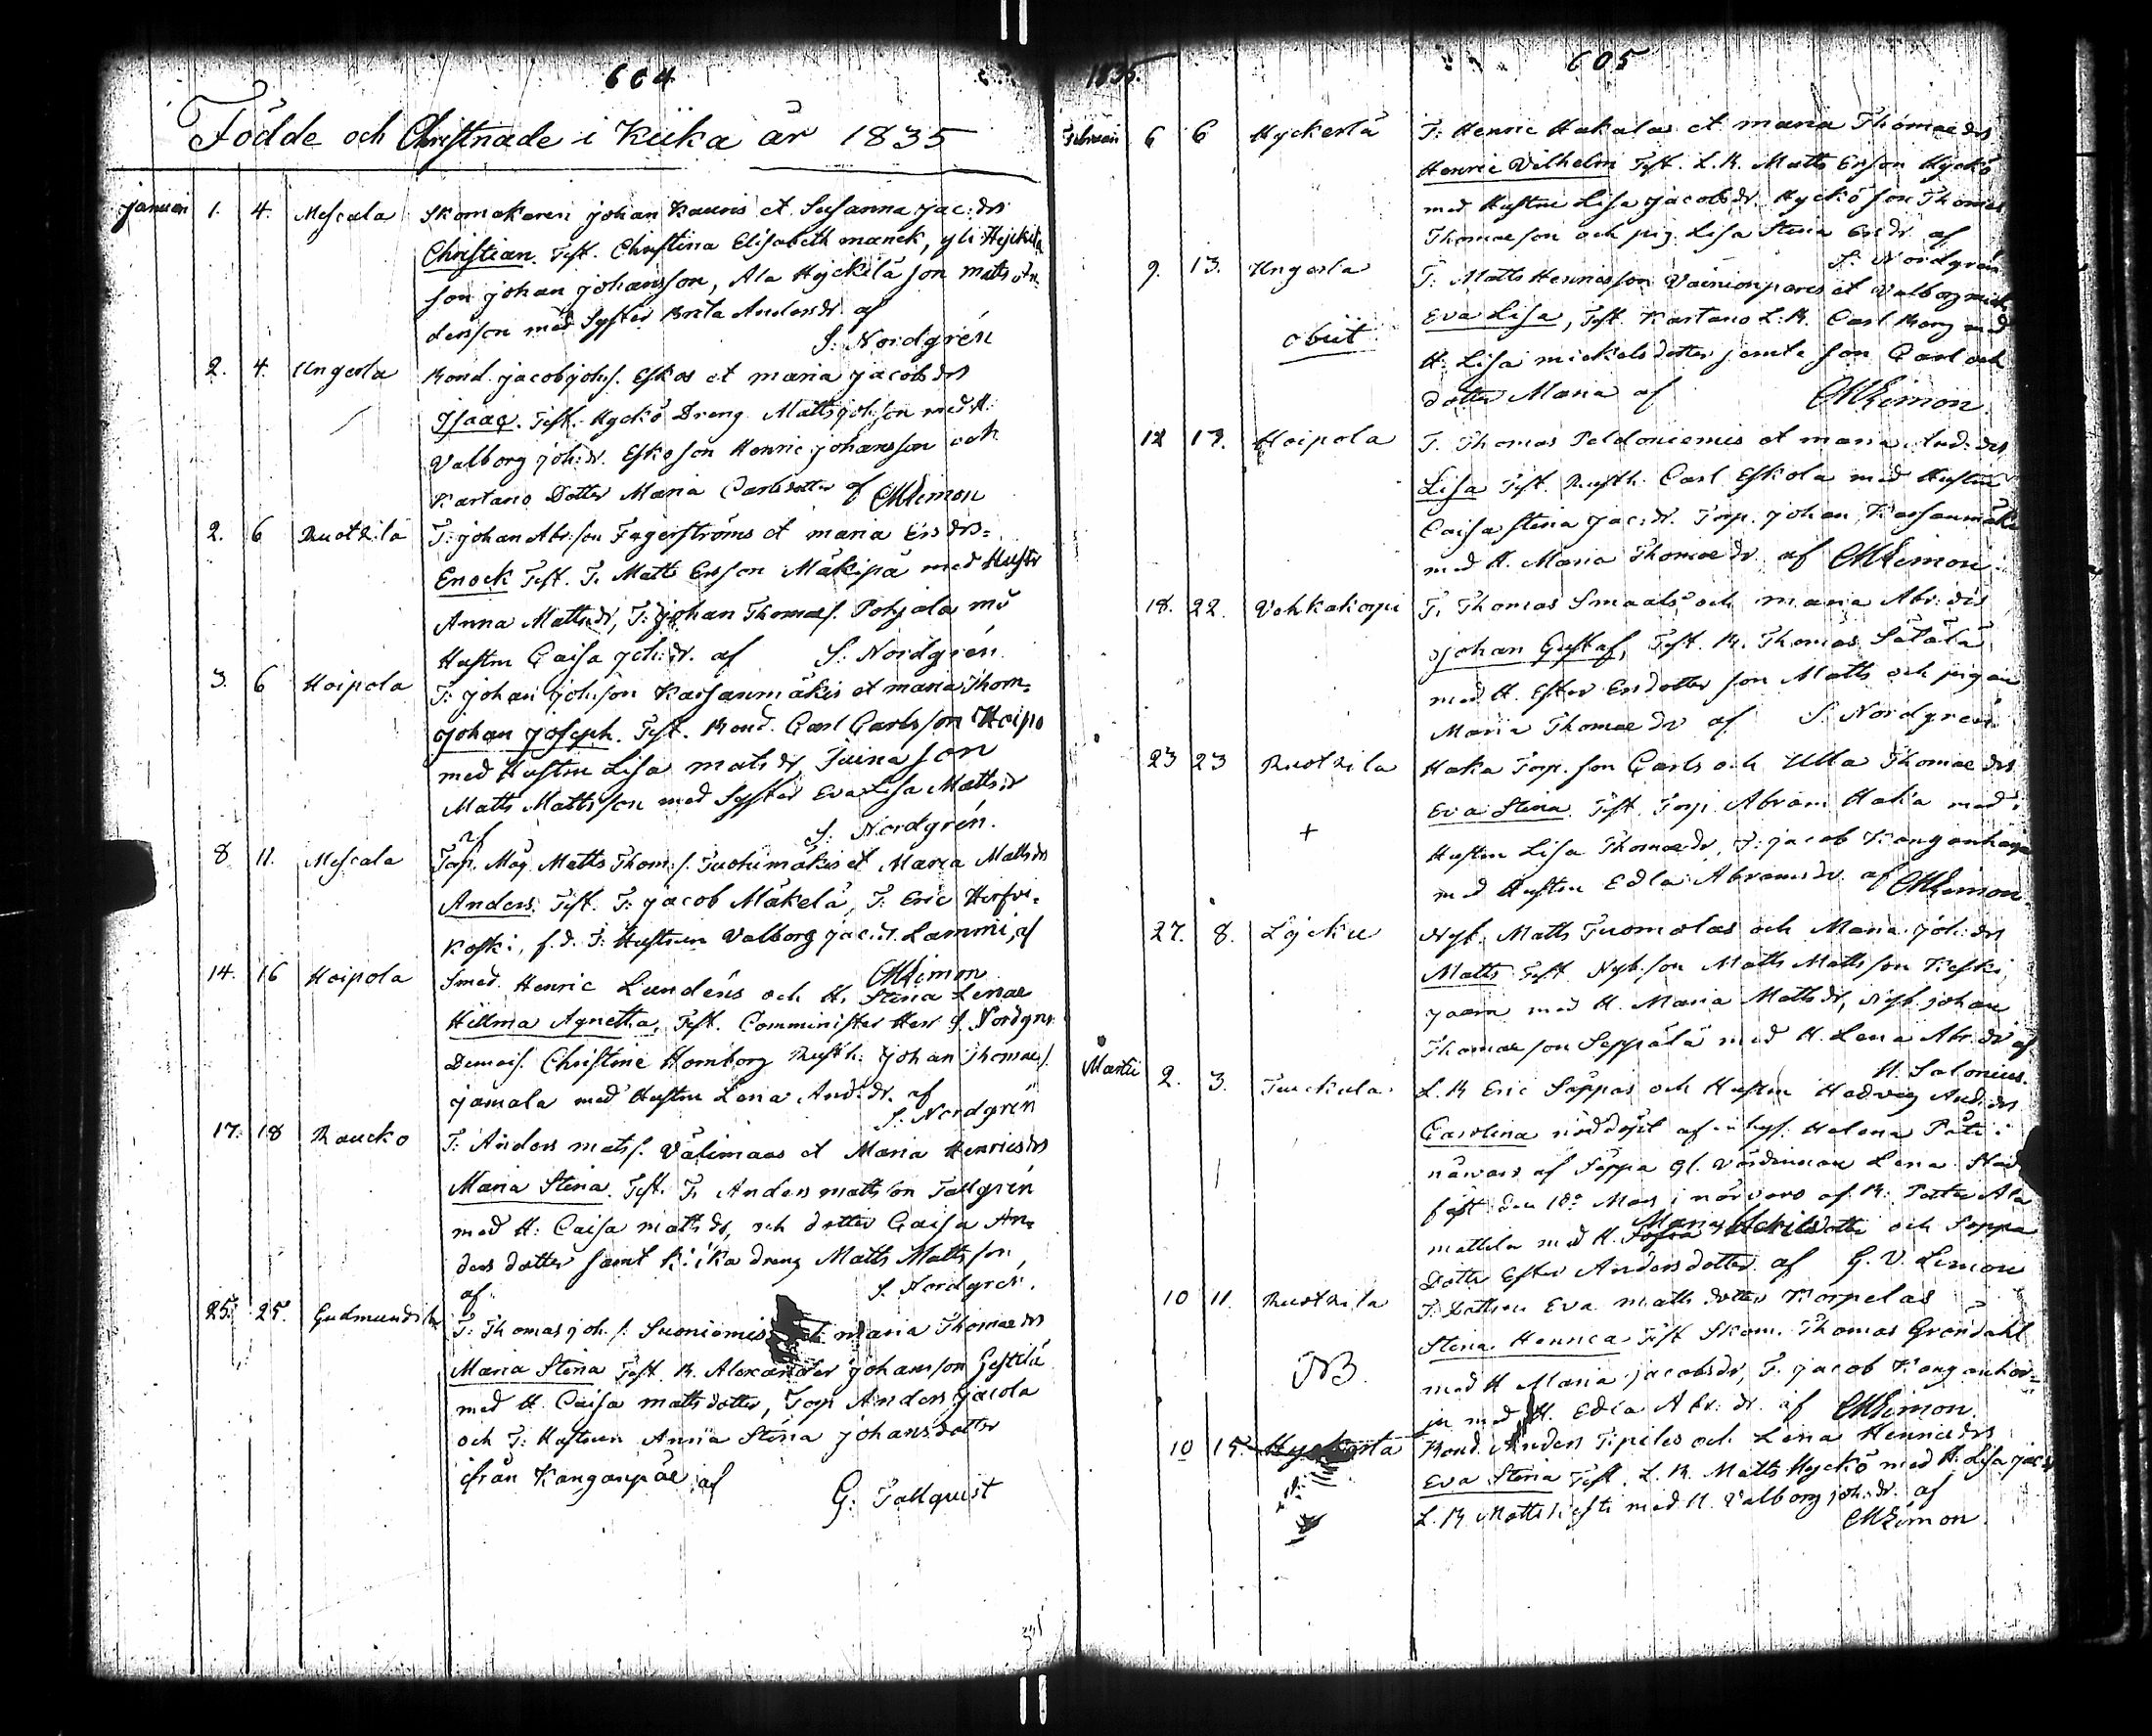 604
Födde och Christnade i Kiika år 1835
Januari 1. 4. Mescala Skomakaren Johan Kauris et Susanna Jac:drs
Christian. Test. Christina Elisabeth manck, yli Hyckilä
son Johan Johansson, Ala Hyckilä son Matts An-
dersson med Syster Brita Andersdr af
S: Nordgrén
2. 4. Ungerla Bond. Jacob Johs. Eskos et Maria Jacobsdrs
Isaac. Test. Hyckö Dreng Matts Joh:son med H:
Valborg Joh:dr. Esko son Henric Johansson och
Kartano Dotter Maria Carlsdotter af GVLimon
2. 6 Ruotzila T: Johan Abr:son Fagerströms et Maria Ersdrs=
Enock Test. T. Matts Ersson Mäkipä med Hustr
Anna Mattsdr, T: Johan Thomas. Pohjala md
Hustru Caisa Joh:dr. af S: Nordgrén
3. 6 Hoipola T: Johan Joh:son Karsanmäkis et maria Thom=
Johan Joseph. Test. Bond. Carl Carlsson Hoipo
med Hustru Lisa matsdr, son
Matts Mattsson med Syster Eva Lisa Mattsdr
af S: Nordgrén.
8 11. Mescala Torp. Måg Matts Thom:s. Tuohimäkis et Maria Mattsdrs
Anders. Test. T: Jacob Mäkelä, T: Eric Hirfvi-
koski, f.d. T: Hustrun Valborg Jac:dr. Lammi, af
GVLimon
14. 16 Hoipola Smed. Henric Lundéns och H. Stina Lenae
Hillma Agnetha, Test. Comminister Herr S. Nordgren
Demois. Christine Homborg Rusth: Johan Thomas.
Jamala med Hustru Lena And:dr. af
S: Nordgrén
17. 18 Raucko T: Anders mats. Välimaas et Maria Henricsdrs
Maria Stina. Test. T. Anders mattsson Tallgrén
med H: Caisa matsdr, och dotter Caisa An-
ders dotter samt Kiika dreng Matts Mattsson,
af S. Nordgrén.
25. 25. Gudmundila T: Thomas Joh:s. Suoniemis et maria Thomaedrs
Maria Stina Test. B. Alexander Johansson Gestilä
med H. Caisa matts dotter, Torp Anders Jacola
och T: Hustrun Anna Stina Johansdotter
ifrån Kanganpäe af
G: Tallquist
605
1835.
Februari 6 6 Hyckerlä T: Henric Hakalas et maria Thomaedrs
Henric Vilhelm Test. L.B. Matts Ersson Hyckö
med Hustru Lisa Jacobsdr. Hyckö son Thomas
Thomaeson och pig. Lisa Stina Ersdr. af
S: Nordgrén
9. 13. Ungerla T: Matts Henricsson Vainionpares et Valborg mich
obiit Eva Lisa, Test. Kartano L.B. Carl Borg med
H. Lisa mickelsdotter jemte son Carl och
dotter Maria af GVLimon
12 17. Hoipola T. Thomas Peldoniemis et maria And:drs
Lisa Test. Rusth. Carl Eskola med Hustru
Caisa Stina Jac:dr. Torp. Johan Karsanmäki
med H. Maria Thomaedr af GVLimon
18. 22. Vohkakorpi T. Thomas Smaals och maria Abr:drs
Johan Gustaf, Test. B. Thomas Sätälä
med H. Ester Ersdotter son Matts och pigan
Maria Thomaedr af S: Nordgrén
23 23 Ruotzila Haka Torp. son Carls och Ulla Thomaedrs
Eva Stina Test. Torp. Abram Haka med
+ Hustru Lisa Thomaedr, T: Jacob Kanganharju
med Hustru Edla Abramsdr. af GVLimon
27. 8. Lyckiu Nyb. Matts Tuomolas och Maria Joh:drs
Matts Test Nyb. son Matts Mattsson Keski
med H. Maria Mattsdr, Nyb. Johan
Thomaeson Seppälä med H. Lena Abr:dr af
H. Salonius.
Martii 2. 3. Turckula L.B Eric Säppas och Hustru Hedvig And:drs
Carolina nöddöpt af inhys. Helena Päti i
närvaro af Säppa gl. värdinnan Lena
fäst den 18. Mars i närvaro af B. Ala
mattila med H. Maria Mickelsdotter och Soppa
Dotter Ester Andersdotter. af G. V. Limon
10 11. Ruotzila T: Dottren Eva matts dotter Korpelas
Stina Henrica Test Skom. Thomas Gröndahl
NB. med H Maria Jacobsdr, T. Jacob Kanganhar=
ju med H. Edla Abr:dr. af GVLimon.
10 15. Bond. Anders Pipiles och Lena Henricdrs
Eva Stina Test. L.B. Matts Hyckö med H: Lisa Jac:dr
L.B. Matts med H. Valborg Joh:dr. af
GVLimon